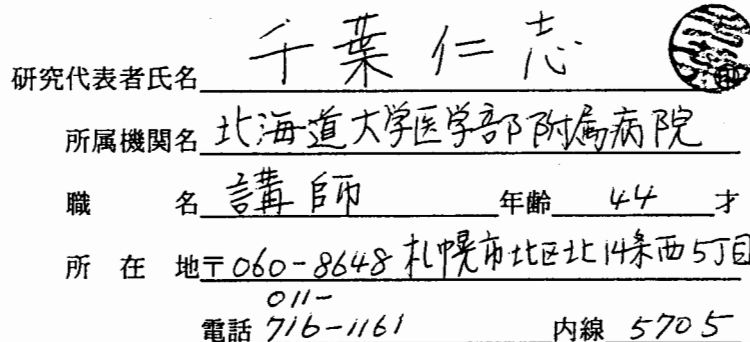 研究代表者氏名 千葉仁志 印
所属機関名 北海道大学医学部附属病院
職 名 講師 年齢 44 才
所 在 地 〒060-8648 札幌市北区北14条西5丁目
011-
電話 716-1161 内線 5705